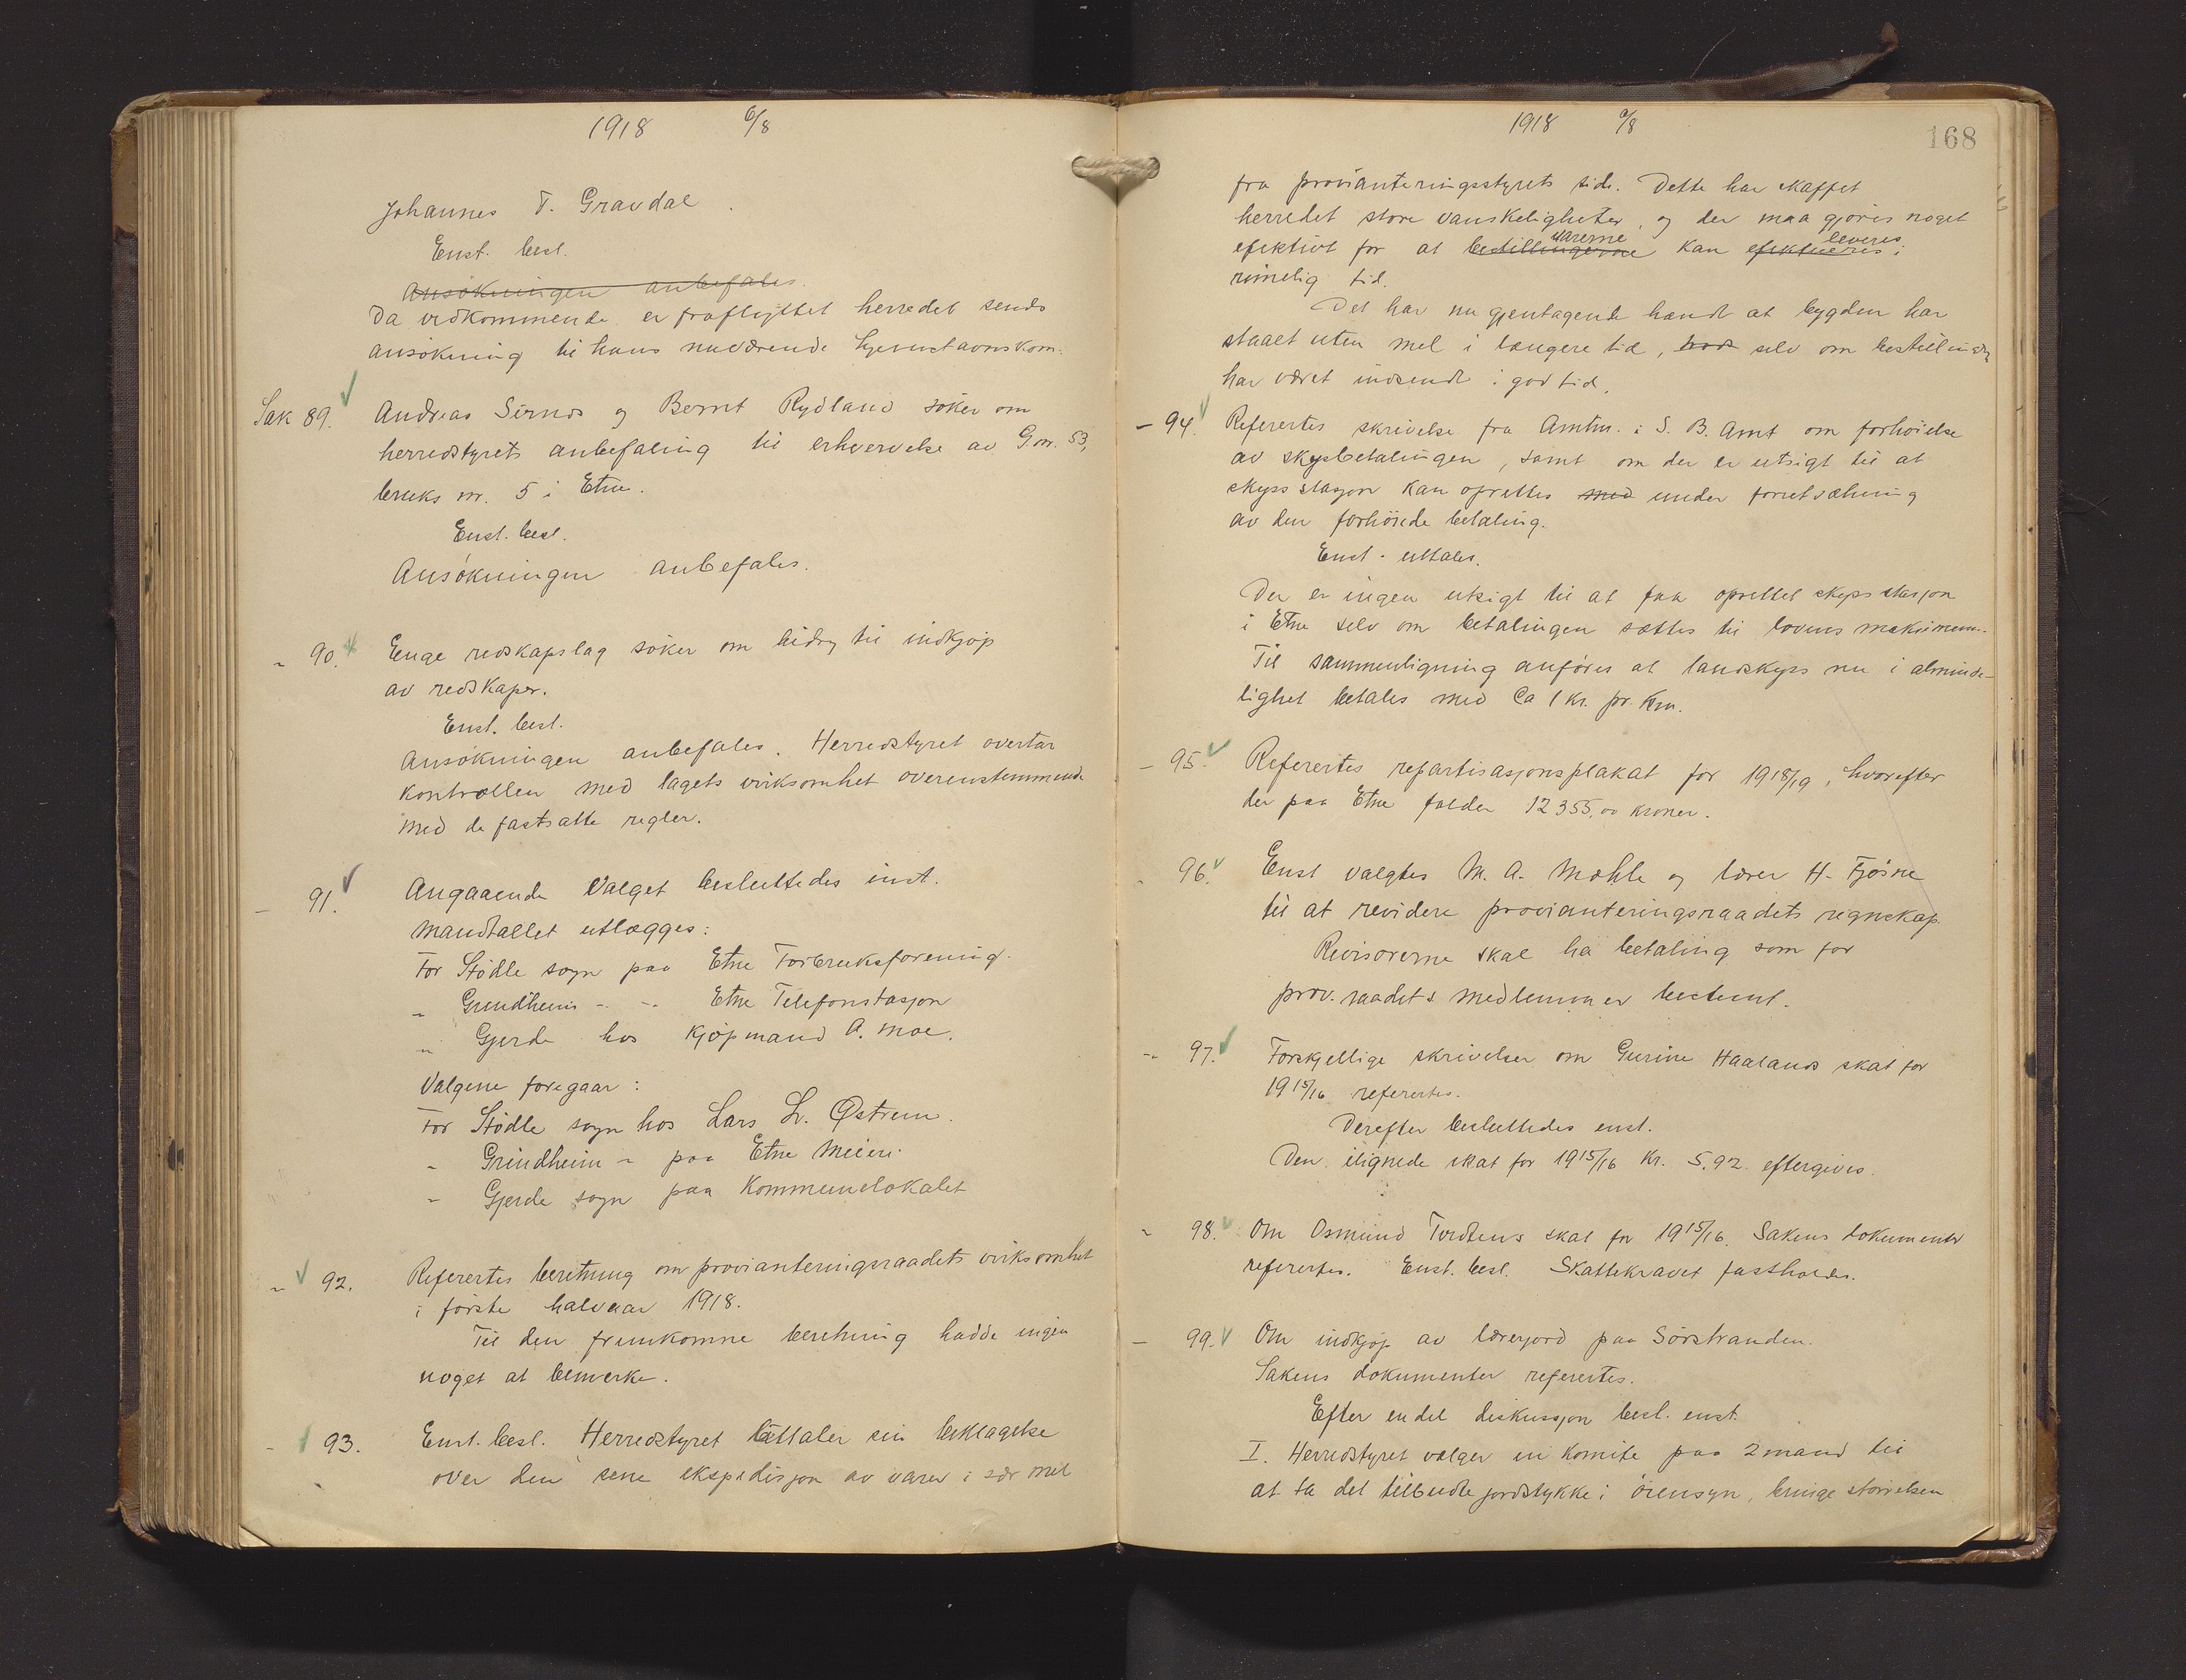 1918 6/8
Johannes T. Gravdal.
Enst. besl.
Ansökningen anbefales.
Da vedkommende er fraflyttet herredet sends
ansökning til hans nuværende hjemstavnskom.
Sak 89. Andreas Sirnes og Bernt Rydland söker om
herredstyrets anbefaling til erhvervelse av G.nr. 53,
bruks nr. 5 i Etne.
Enst. besl.
Ansökningen anbefales.
" 90. Enge redskapslag söker om bidrag til indkjöp
av redskaper.
Enst. besl.
Ansökningen anbefales. Herredstyret overtar
kontrollen med lagets virksomhet overenstemmende
med de fastsatte regler.
– 91. Angaaende Valget besluttedes enst.
Mandtallet utlægges:
For Stödle sogn paa Etne Forbruksforening.
" Grindheim - - Etne Telefonstasjon
" Gjerde hos Kjöpmand A. Moe.
Valgene foregaar:
For Stödle sogn hos Lars L. Østrem.
" Grindheim " paa Etne Meieri.
" Gjerde sogn paa Kommunelokalet
" 92. Referertes beretning om provianteringsraadets virksomhet
i förste halvaar 1918.
Til den fremkomne beretning hadde ingen
noget at bemerke.
- 93. Enst. besl. Herredstyret uttaler sin beklagelse
over den sene ekspedisjon av varer i sær mel
1918 6/8
168
fra provianteringsstyrets side. Dette har skaffet
herredet store vanskeligheter, og der maa gjöres noget
varerne leveres
efektivt for at bestillingerne kan efektueres i
rimelig tid.
Det har nu gjentagende hændt at bygden har
staaet uten mel i længere tid, selv om bestilling
har været indsendt i god tid.
– 94. Referertes skrivelse fra Amtm. i S. B. Amt om forhöielse
av skysbetalingen, samt om der er utsigt til at
skysstasjon kan oprettes med under forutsætning
av den forhöiede betaling.
Enst. uttales.
Der er ingen utsigt til at faa oprettet skysstasjon
i Etne selv om betalingen sættes til lovens maksimum.
Til sammenligning anföres at landskyss nu i alminde-
lighet betales med Ca 1 kr. pr. Km.
– 95. Referertes repartisasjonsplakat for 1918/19, hvorefter
der paa Etne falder 12355,00 kroner.
- 96. Enst valgtes M. A. Mæhle og lærer H. Fjösne
til at revidere provianteringsraadets regnskap.
Revisorerne skal ha betaling som for
prov. raadets medlemmer bestemt.
-" 97. Forskjellige skrivelser om Gurine Haalands skat for
1915/16 referertes.
Derefter besluttedes enst.
Den ilignede skat for 1915/16 Kr. 5.92 eftergives.
" 98. Om Osmund Tordtens skat for 1915/16. Sakens dokumenter
referertes. Enst. besl. Skattekravet fastholdes.
– 99. Om indkjöp av lærerjord paa Sörstranden.
Sakens dokumenter referertes.
Efter endel diskussjon besl. enst.
I. Herredstyret vælger en komite paa 2 mand til
at ta det tilbudte jordstykke i öiensyn, bringe störrelsen